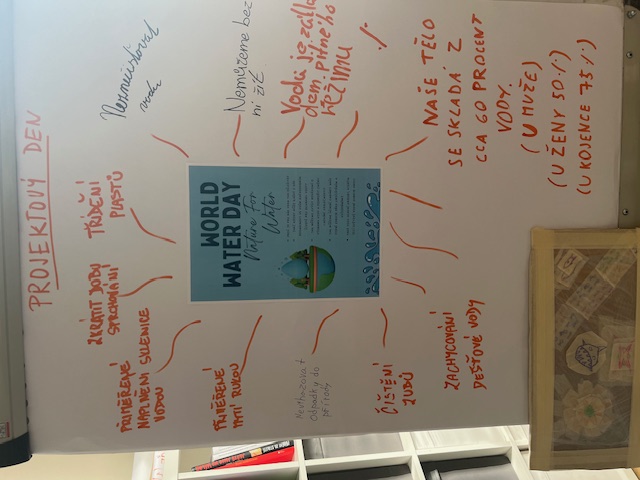 PROJEKTOVÝ DEN
PŘIMĚŘENÉ
NAPLNĚNÍ SKLENICE
VODOU
ZKRÁTIT DOBU
SPRCHOVÁNÍ
TŘÍDĚNÍ
PLASTŮ
Neznečišťovat
vodu
Nemůžeme bez
ní žít
Voda je zákla
dem pitného
režimu
NAŠE TĚLO
SE SKLADÁ Z
CCA 60 PROCENT
VODY.
(U MUŽE)
(U ŽENY 50%)
(U KOJENCE 75%)
WORLD
WATER DAY
Nature For
Water
PŘIMĚŘENÉ
MYTÍ RUKOU
Nevhazovat
odpadky do
přírody
ČIŠTĚNÍ
ZUBŮ
ZACHYCOVÁNÍ
DEŠŤOVÉ VODY